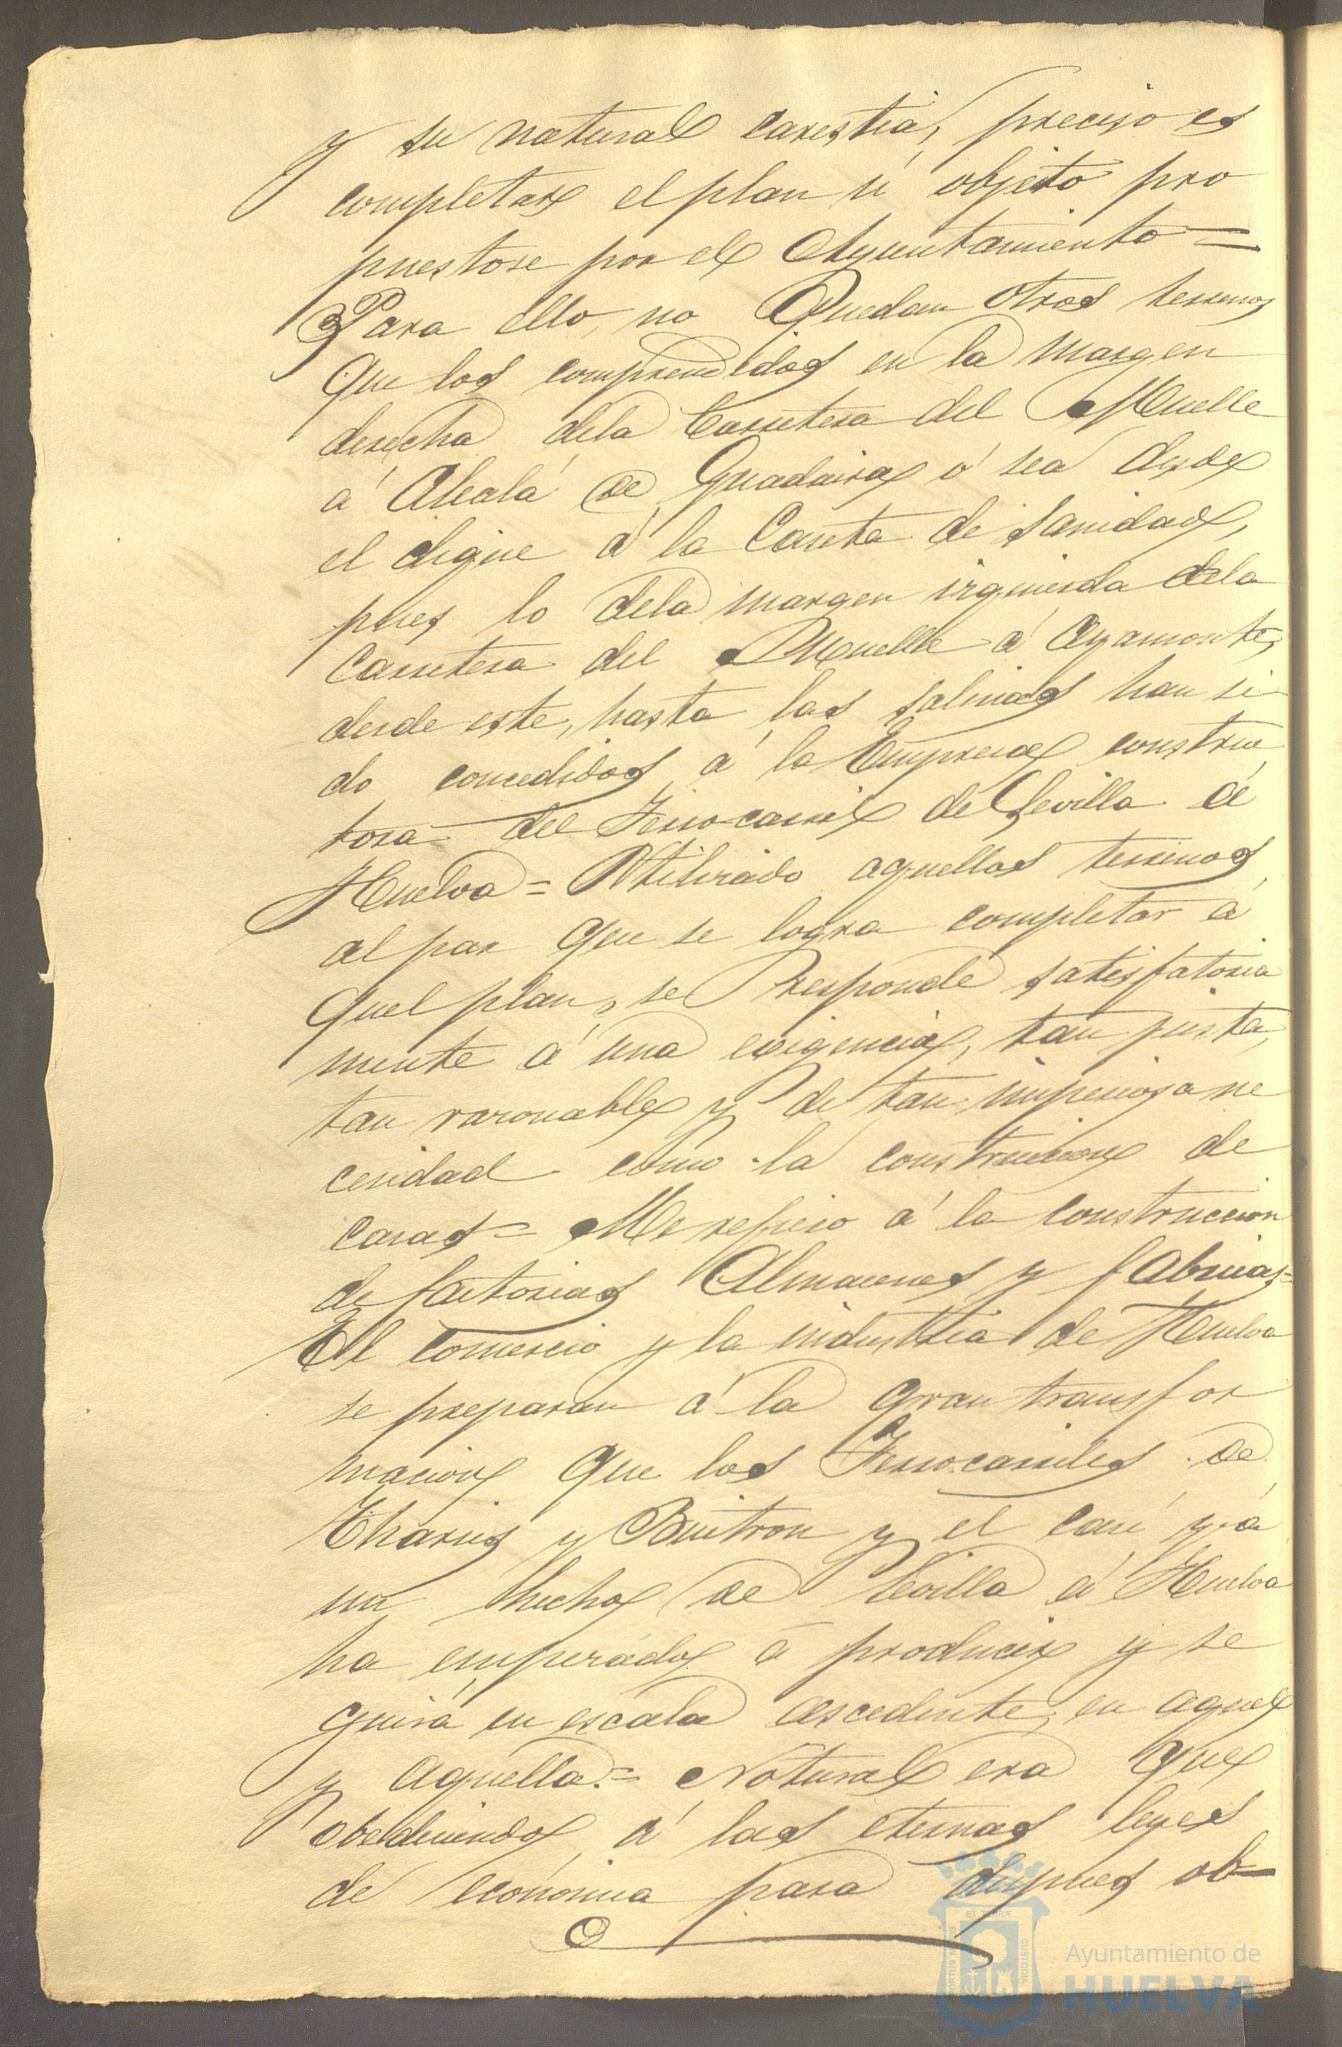 y su natural carestia, preciso es
completar el plan ú objeto pro
puestose por el Ayuntamiento =
Para ello, no Quedan Otros terrenos
Que los comprendidos en la margen
derecha dela Carretera del Muelle
á Alcalá de Guadaira ó sea desde
el dique á la Caseta de sanidad,
pues lo dela margen izquierda dela
Carretera del Muelle á Ayamonte,
desde este, hasta las salinas han si
do concedidos á la Empresa construc
tora del Ferrocarril de Sevilla á
Huelva = Utilizado aquellos terrenos,
al par que se logra completar á
quel plan, se responde satisfatoria
mente á una exigencia, tan justa,
tan razonable y de tan imperiosa ne
cesidad como la construcion de
casas = Me refiero á la construccion
de factorias Almacenes y fabricas =
El comercio y la industria de Huelva
se preparan á la gran transfor
macion que los Ferrocarriles de
Tharsis y Buitron y el casi yá
un hecho de Sevilla á Huelva
ha empezado á producir y se
guirá en escala ascedente, en aquel
y aquella. = Natural era que
obedeciendo, á las eternas leyes
de económia para despues ob-
Ayuntamiento de
HUELVA